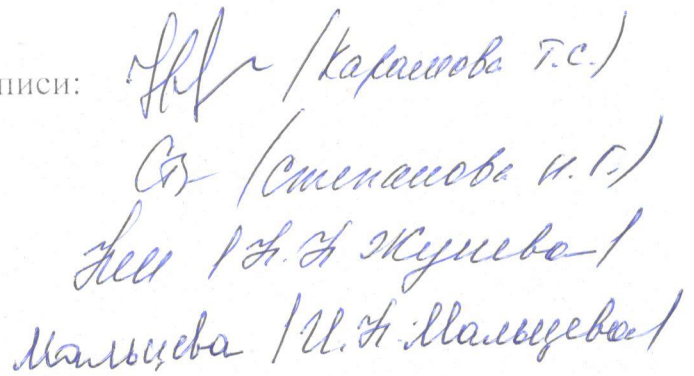 писи: (Карамова Т.С.)
(Степанова Н.Г.)
(Н.Н Жунева)
Мальцева (И.Н. Мальцева)